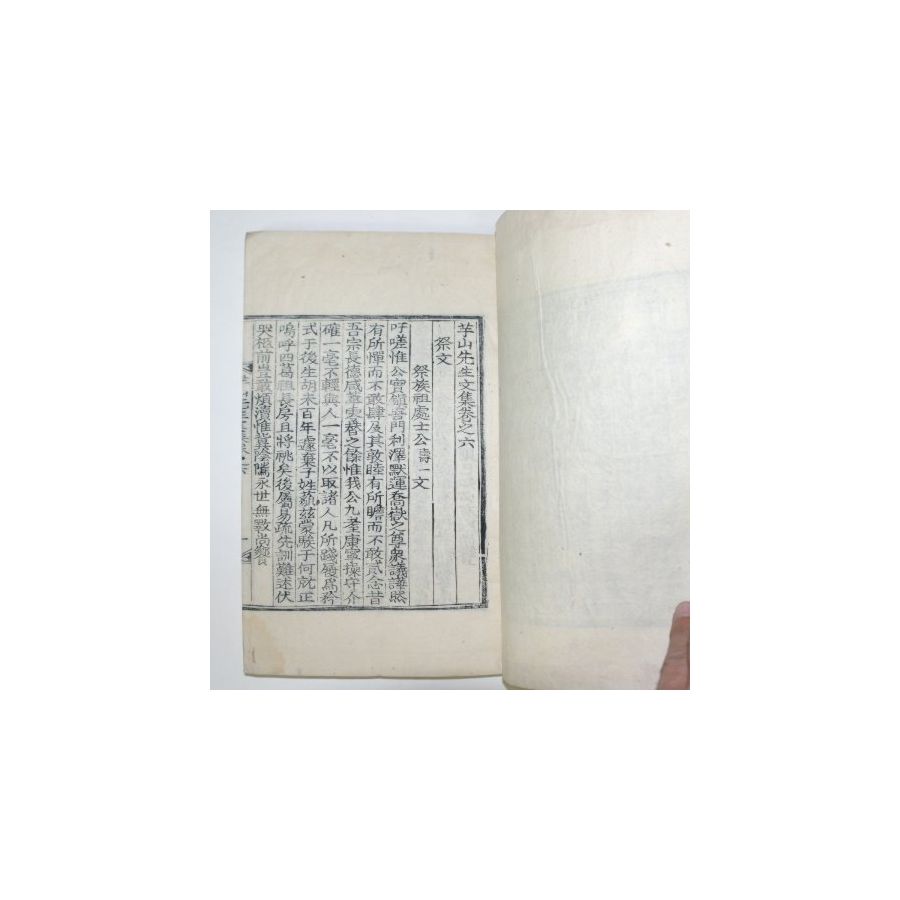 芋山先生文集卷之六
祭文
祭族祖處士公壽一文
吁嗟惟公實顯吾門利澤默運喬嶽之尊衆議譁然
有所憚而不敢肆及其敦睦有所瞻而不敢貳念昔
吾宗長德咸萃雲瞀之餘惟我公九耋康寧操守介
確一毫不輕與人一毫不以取諸人凡所踐履爲矜
式于後生胡未百年遽棄子姓藐茲蒙騃于何就正
嗚呼四葛祖長房且將祧矣後屬易疏先訓難述伏
哭柩前豈敢煩瀆惟冀陰騭永世無斁尙饗